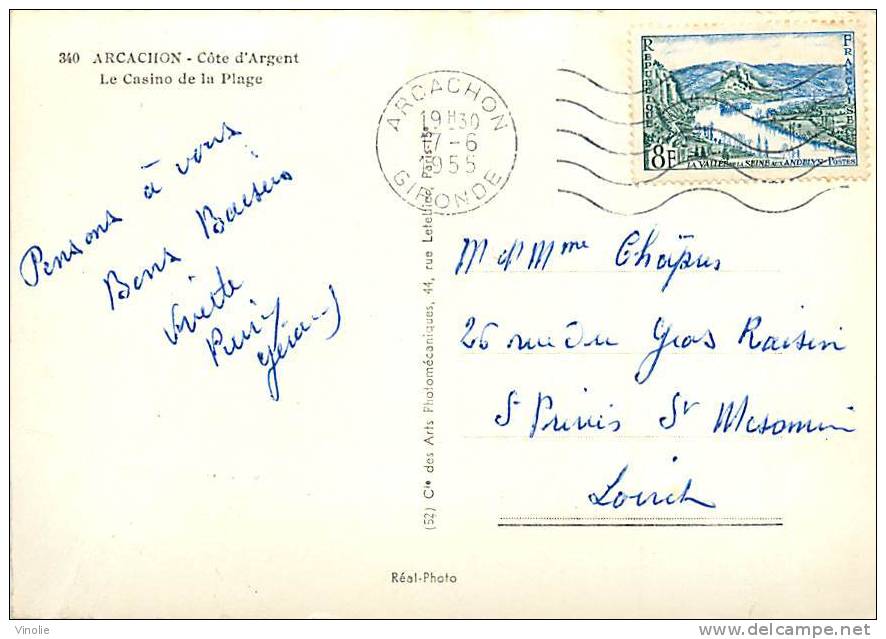 340 ARCACHON - Côte d'Argent
Le Casino de la Plage
Pensons à vous
Bons Baisers
Réal-Photo
(52) Cie des Arts Photomécaniques, 44, rue Letellier, Paris-15e
ARCACHON
19H30
17-6
1955
GIRONDE
REPUBLIQUE
FRANÇAISE
8F
LA VALLEE DE LA SEINE AUX ANDELYS-POSTES
M et Mme Chapus
26 rue du Gros Raisin
St Privés St Mesmin
Loiret
Vinolie
www.delcampe.net